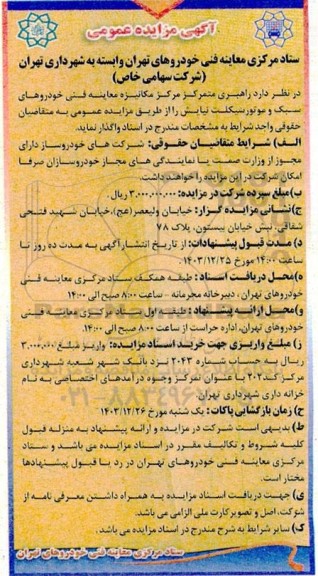 آگهی مزایده عمومی
ستاد مرکزی معاینه فنی خودروهای تهران وابسته به شهرداری تهران
(شرکت سهامی خاص)
در نظر دارد راهبری متمرکز مرکز مکانیزه معاینه فنی خودروهای
سبک و موتورسیکلت نیایش را از طریق مزایده عمومی به متقاضیان
حقوقی واجد شرایط به مشخصات مندرج در اسناد واگذار نماید.
الف) شرایط متقاضیان حقوقی: شرکت های خودروساز دارای
مجوز از وزارت صمت یا نمایندگی های مجاز خودروسازان صرفا
امکان شرکت در این مزایده را خواهند داشت.
ب) مبلغ سپرده شرکت در مزایده: ۳.۰۰۰.۰۰۰.۰۰۰ ریال.
ج) نشانی مزایده گزار: خیابان ولیعصر(عج)، خیابان شهید فتحی
شقاقی، نبش خیابان بیستون، پلاک ۷۸
د) مدت قبول پیشنهادات: از تاریخ انتشار آگهی به مدت ده روز تا
ساعت ۱۴:۰۰ مورخ ۱۴۰۳/۱۲/۲۵.
ه) محل دریافت اسناد: طبقه همکف ستاد مرکزی معاینه فنی
خودروهای تهران، دبیرخانه محرمانه - ساعت ۸:۰۰ صبح الی ۱۴:۰۰
و) محل ارائه پیشنهاد: طبقه اول ستاد مرکزی معاینه فنی
خودروهای تهران، اداره حراست از ساعت ۸:۰۰ صبح الی ۱۴:۰۰.
ز) مبلغ واریزی جهت خرید اسناد مزایده: واریز مبلغ ۳.۰۰۰.۰۰۰
ریال به حساب شماره ۲۰۴۳ نزد بانک شهر شعبه شهرداری
مرکز کد ۲۰۲ با عنوان تمرکز وجوه درآمدهای اختصاصی به نام
خزانه داری شهرداری تهران
ح) زمان بازگشایی پاکات: یک شنبه مورخ ۱۴۰۳/۱۲/۲۶
ط) بدیهی است شرکت در مزایده و ارائه پیشنهاد به منزله قبول
کلیه شروط و تکالیف مقرر در اسناد مزایده می باشد و ستاد
مرکزی معاینه فنی خودروهای تهران در رد یا قبول پیشنهادها
مختار است.
ی) جهت دریافت اسناد مزایده به همراه داشتن معرفی نامه از
شرکت، اصل و تصویر کارت ملی الزامی می باشد.
ک) سایر شرایط به شرح مندرج در اسناد مزایده می باشد.
ستاد مرکزی معاینه فنی خودروهای تهران